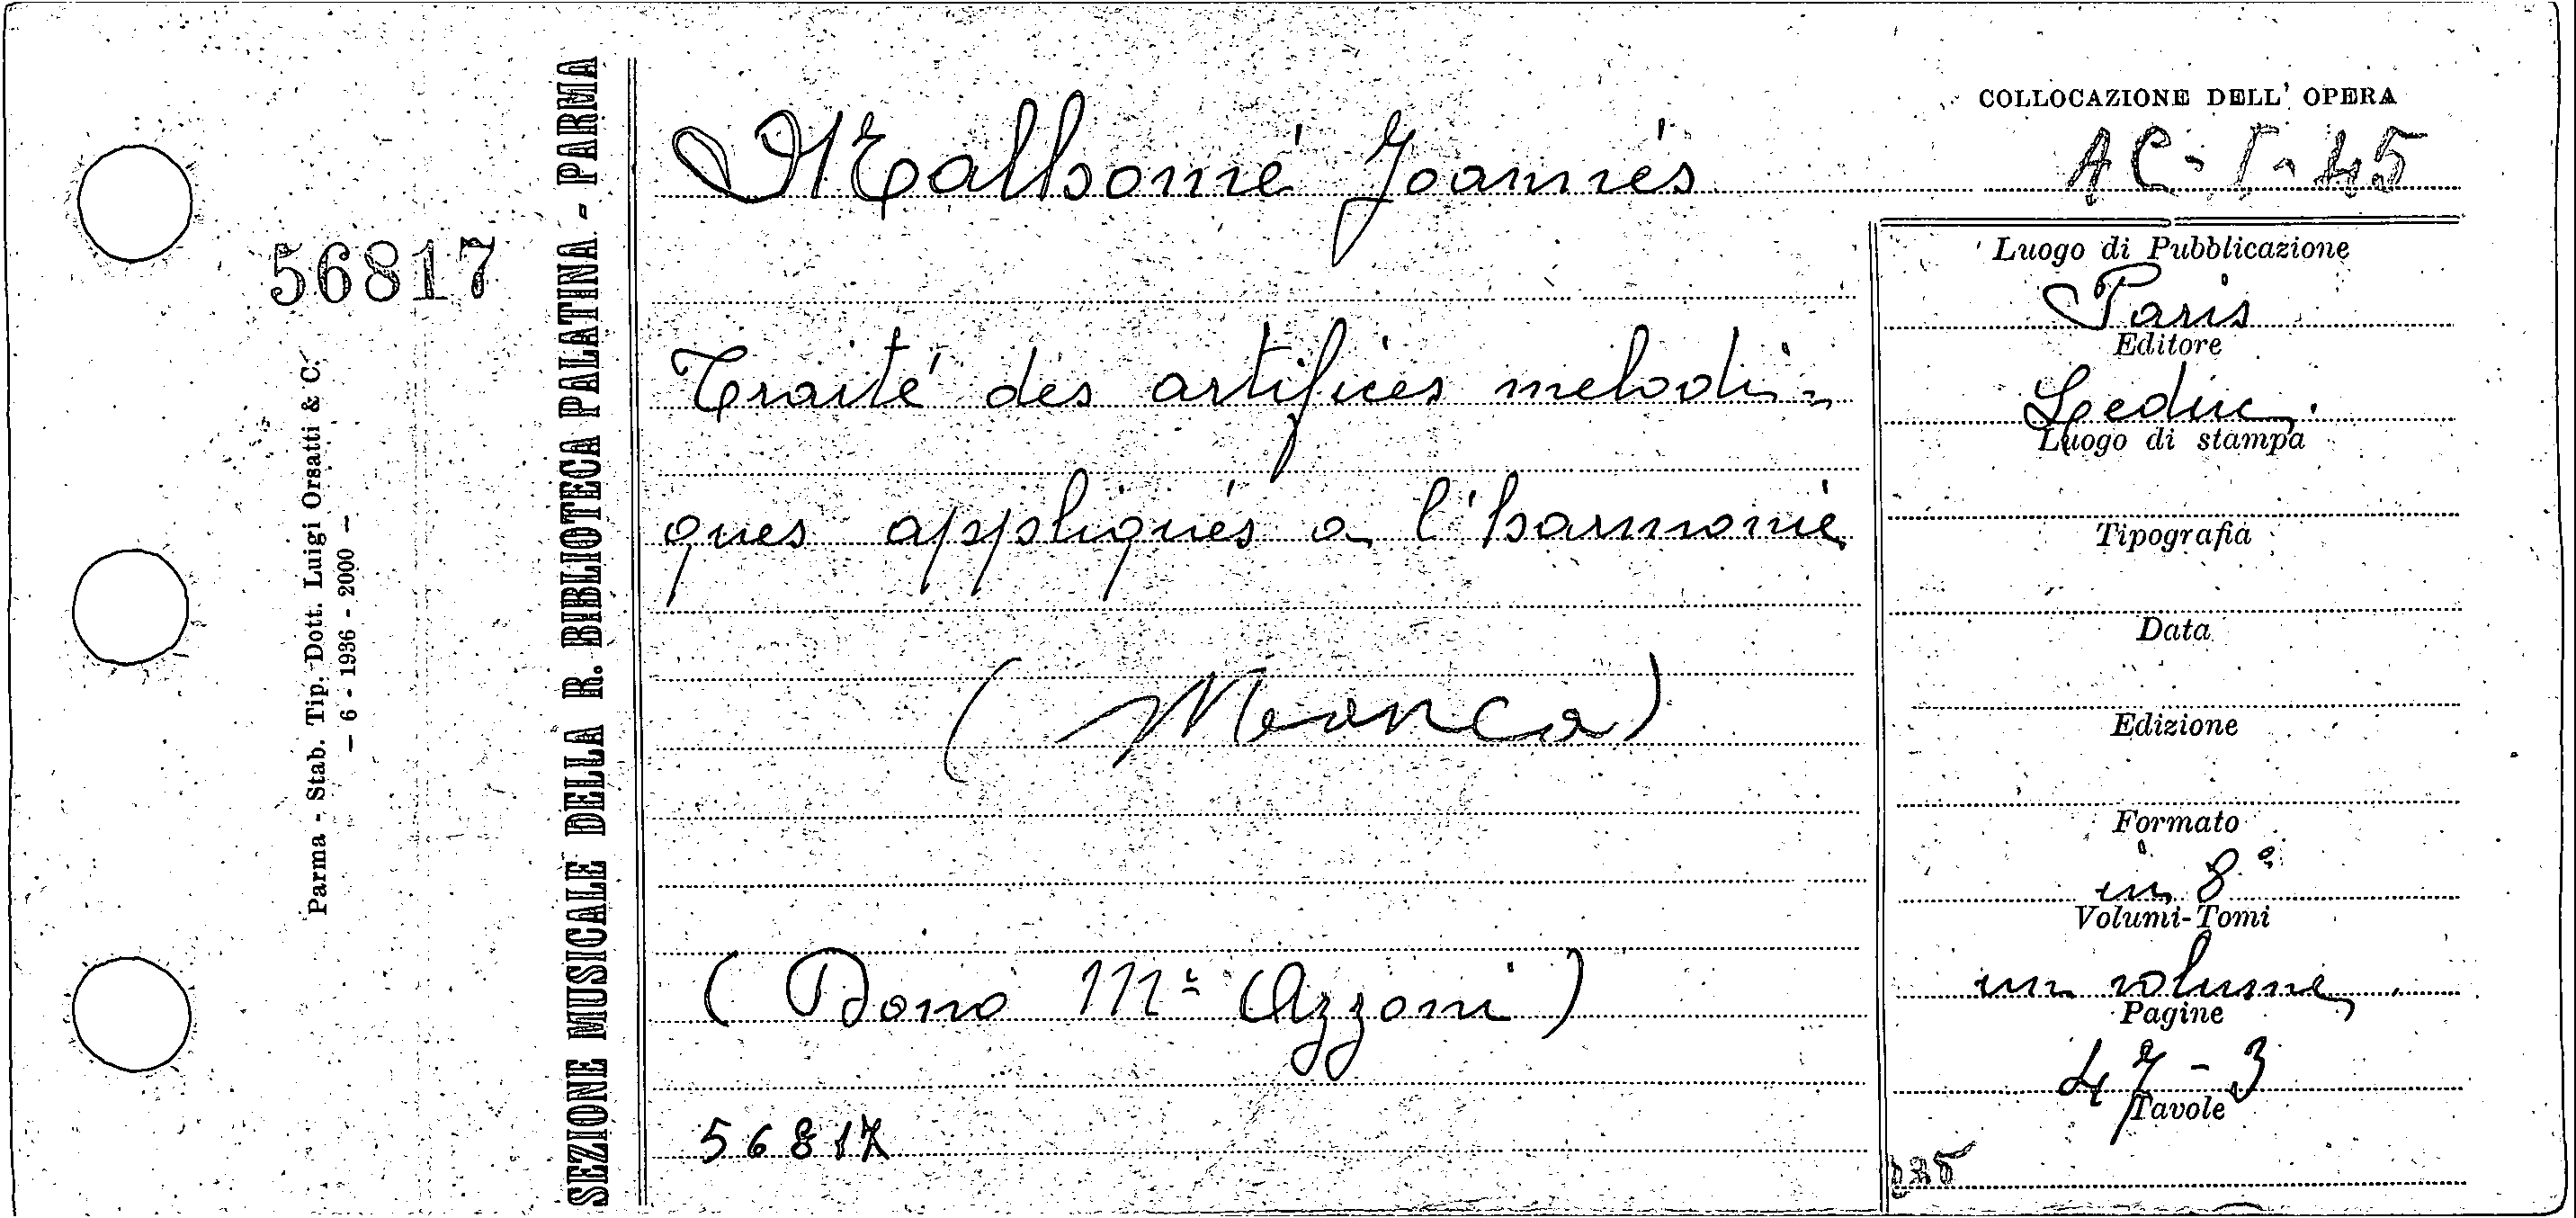 COLLOCAZIONE DELL' OPERA
Malhomé Joannés
AC-I-45
56817
Luogo di Pubblicazione
Paris
Editore
Traité des artifices melodi-
Leduc.
Luogo di stampa
ques appliqués a l'harmonie
Tipografia
Data
(Manca)
Edizione
Formato
in 8°
Volumi-Tomi
(Dono Mº Azzoni)
un volume
Pagine
47-3
Tavole
56817
SEZIONE MUSICALE DELLA R. BIBLIOTECA PALATINA - PARMA
Parma - Stab. Tip. Dott. Luigi Orsatti & C.
— 6 - 1936 - 2000 —